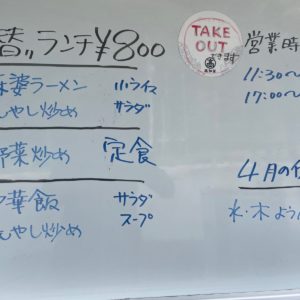 替〃ランチ¥800
婆ラーメン 小ライス
もやし炒め サラダ
野菜炒め 定食
中華飯 サラダ
もやし炒め スープ
TAKE
OUT
できます
営業時
11:30～
17:00～
4月の
水・木よう